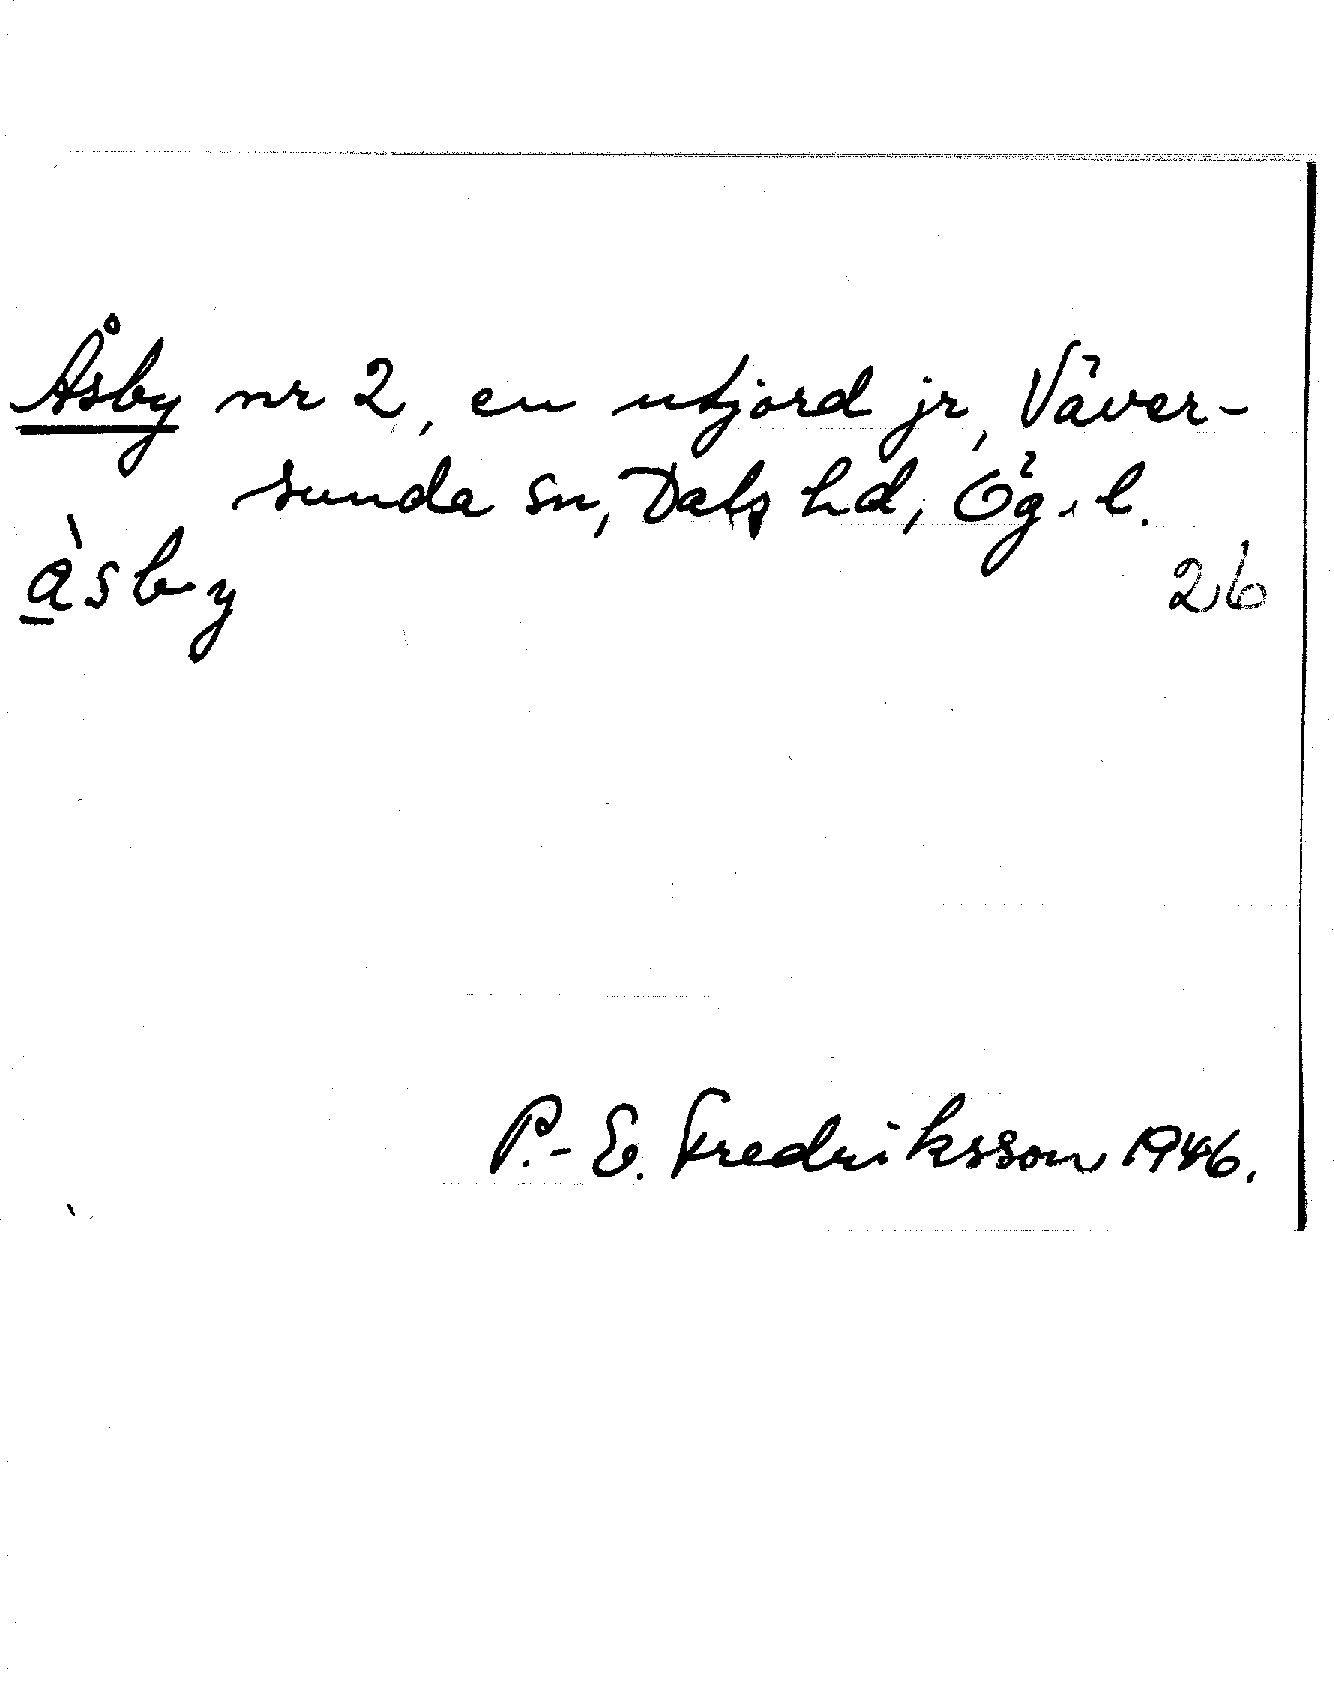 Åsby nr 2, en utjord jr, Väver-
sunda sn, Dals hd, Ög. l.
à̲sby 26
P.-E. Fredriksson 1946.